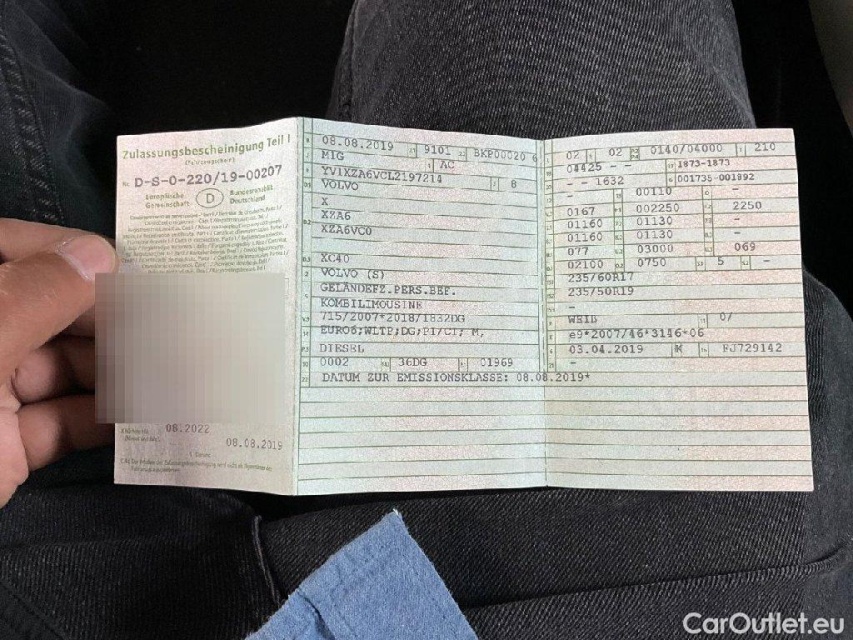 Zulassungsbescheinigung Teil I
(Fahrzeugschein)
Nr. D-S-0-220/19-00207
Europäische Gemeinschaft D Bundesrepublik Deutschland
08.2022
08.08.2019
08.08.2019 9101 BKP00020 6
M1G AC
YV1XZA6VCL2197214 8
VOLVO
X
XZA6
XZA6VC0
XC40
VOLVO (S)
GELÄNDEFZ.PERS.BEF.
KOMBILIMOUSINE
715/2007*2018/1832DG
EURO6;WLTP;DG;PI/CI: M,
DIESEL
0002 36DG 01969
DATUM ZUR EMISSIONSKLASSE: 08.08.2019*
02 02 0140/04000 210
04425 - - 1873-1873
- - 1632 001735-001892
- 00110 -
0167 002250 2250
01160 01130 -
01160 01130 -
077 03000 069
02100 0750 5 -
235/60R17
235/50R19
-
WEIß 0/
e9*2007/46*3146*06
03.04.2019 K FJ729142
-
CarOutlet.eu